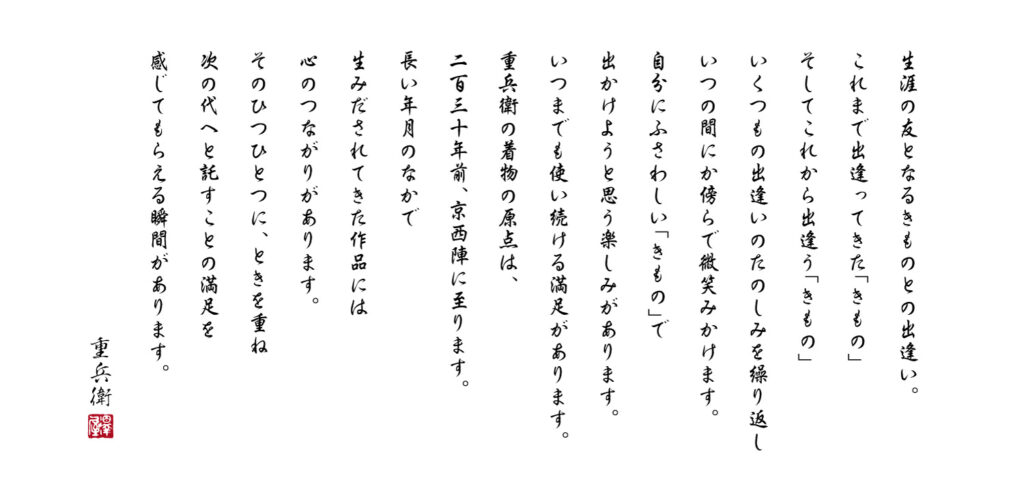 生涯の友となるきものとの出逢い。
これまで出逢ってきた「きもの」
そしてこれから出逢う「きもの」
いくつもの出逢いのたのしみを繰り返し
いつの間にか傍らで微笑みかけます。
自分にふさわしい「きもの」で
出かけようと思う楽しみがあります。
いつまでも使い続ける満足があります。
重兵衛の着物の原点は、
二百三十年前、京西陣に至ります。
長い年月のなかで
生みだされてきた作品には
心のつながりがあります。
そのひつひとつに、ときを重ね
次の代へと託すことの満足を
感じてもらえる瞬間があります。
重兵衛